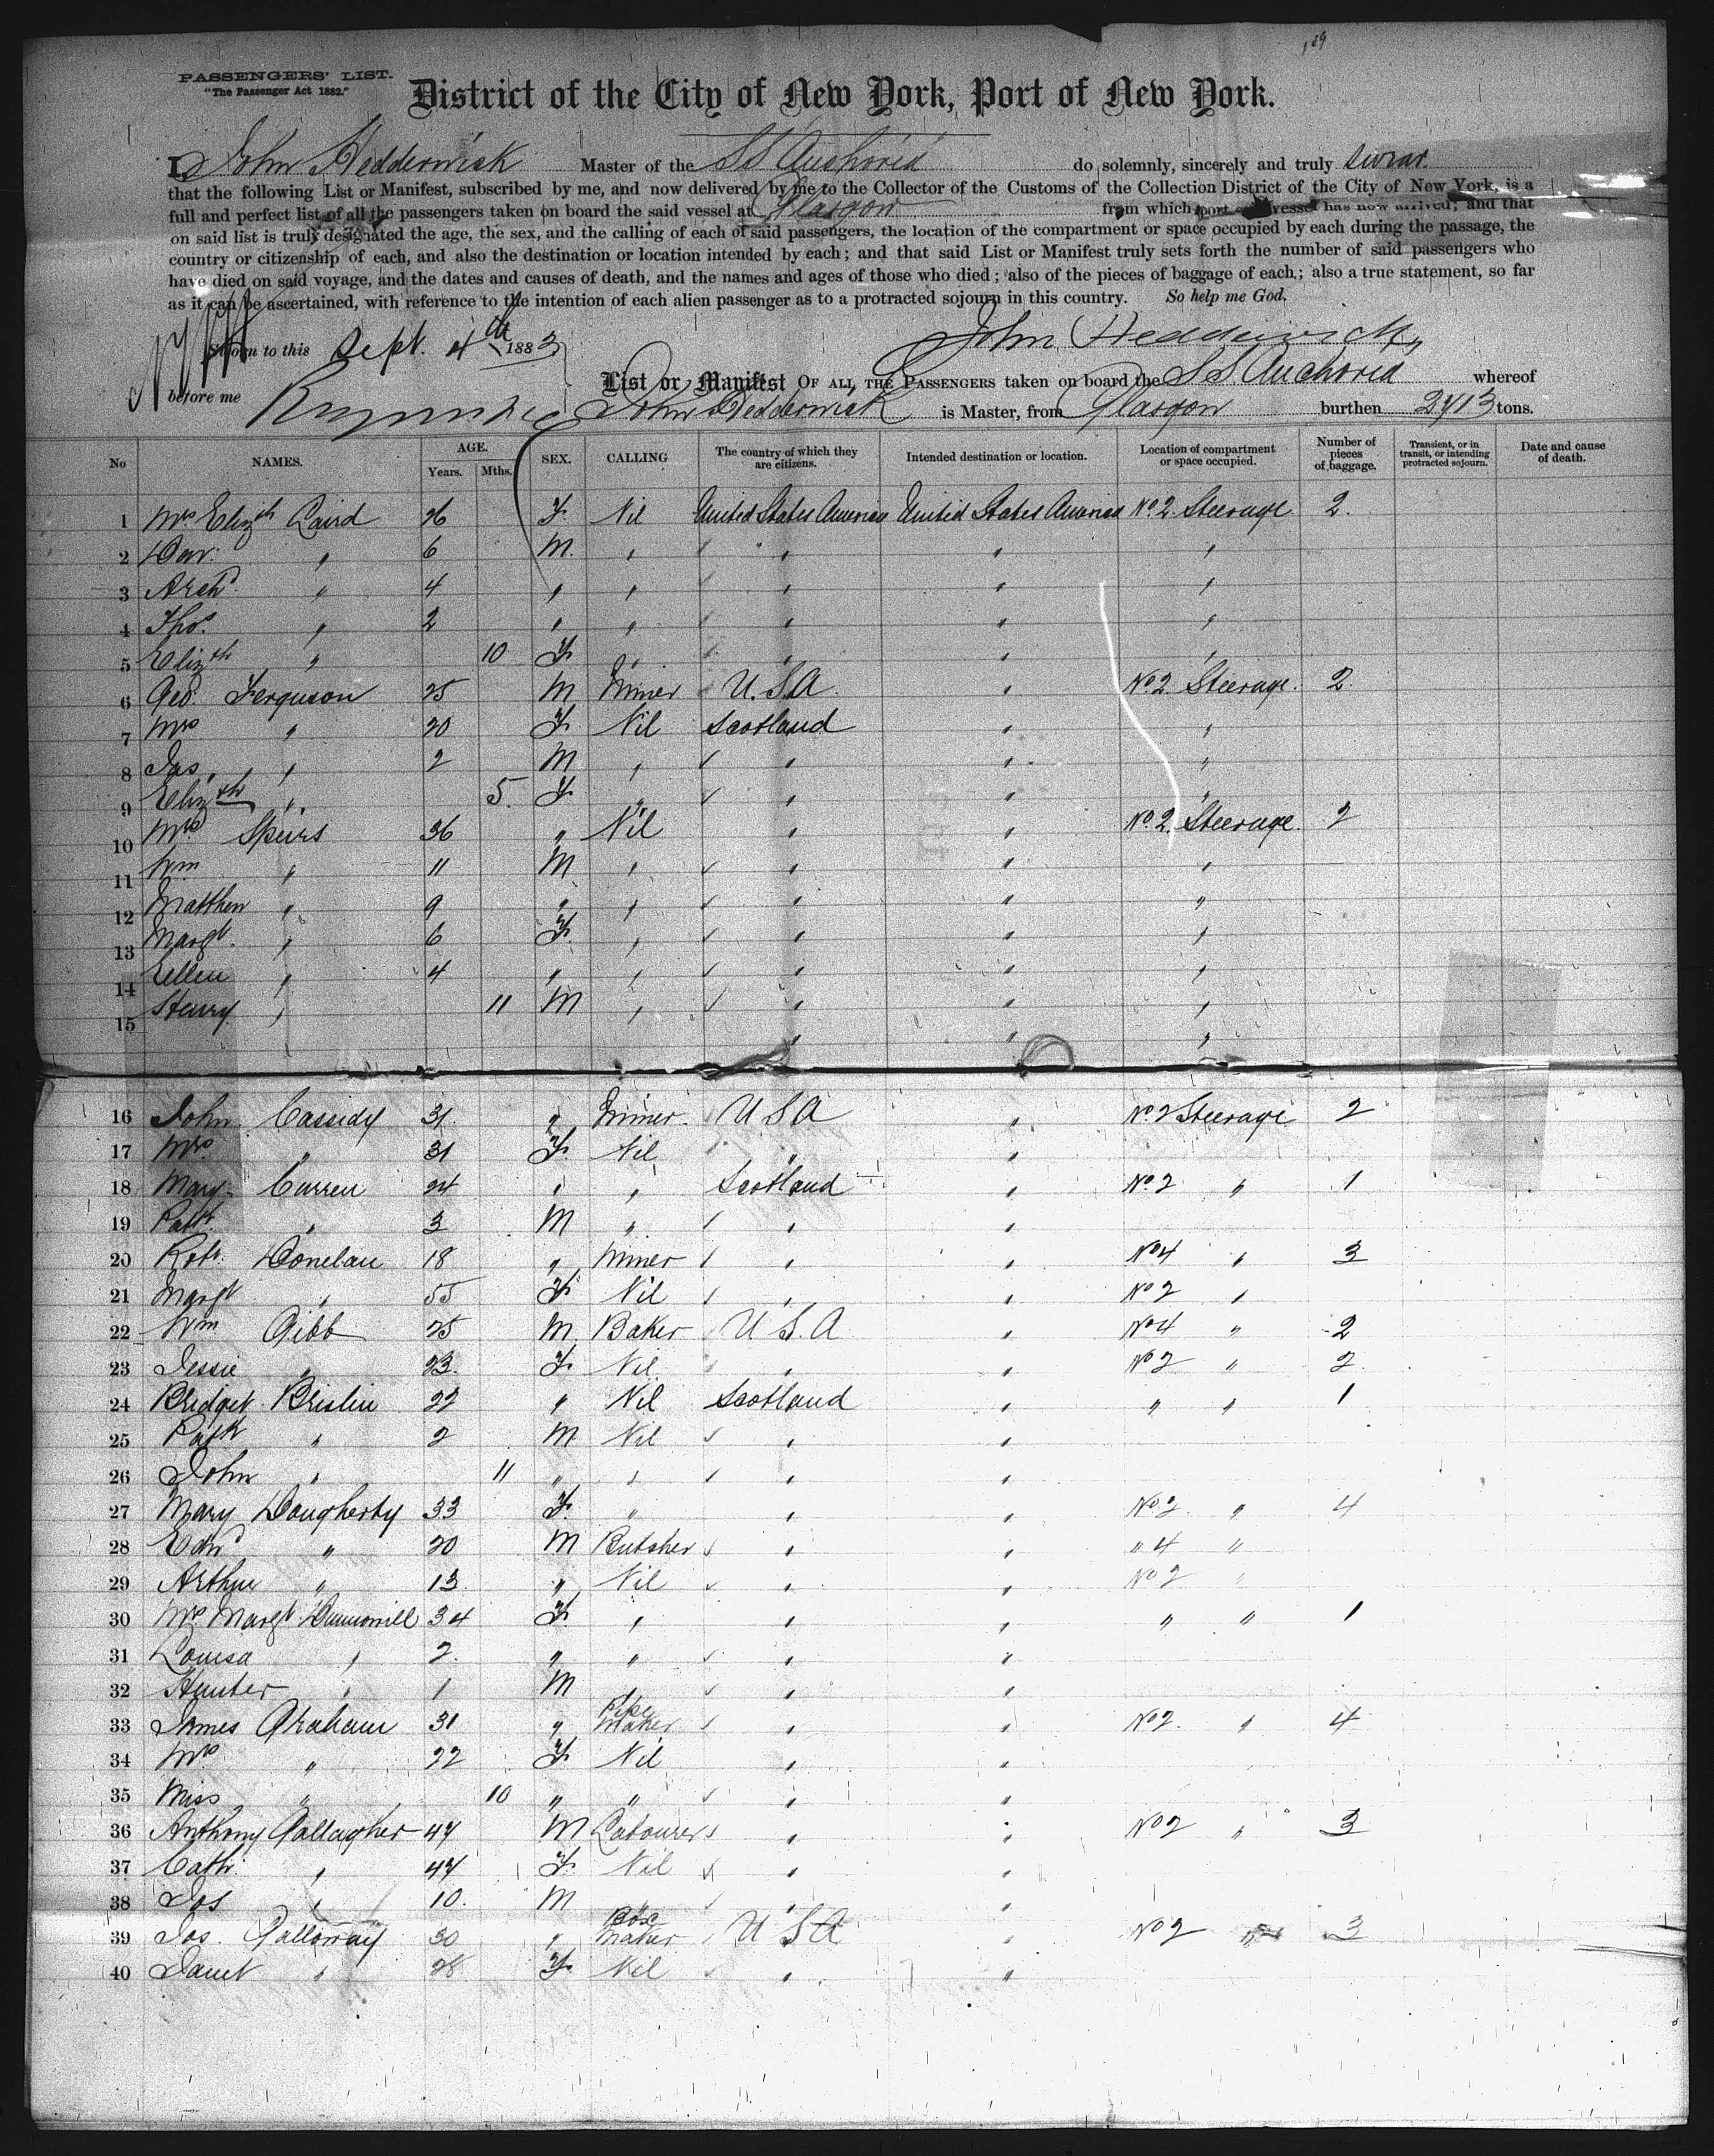 189
PASSENGERS' LIST.
"The Passenger Act 1882."
District of the City of New York, Port of New York.
I, John Hedderwick Master of the SS Anchoria do solemnly, sincerely and truly swear
that the following List or Manifest, subscribed by me, and now delivered by me to the Collector of the Customs of the Collection District of the City of New York, is a
full and perfect list of all the passengers taken on board the said vessel at Glasgow from which port vessel has now arrived; and that
on said list is truly designated the age, the sex, and the calling of each of said passengers, the location of the compartment or space occupied by each during the passage, the
country or citizenship of each, and also the destination or location intended by each; and that said List or Manifest truly sets forth the number of said passengers who
have died on said voyage, and the dates and causes of death, and the names and ages of those who died; also of the pieces of baggage of each; also a true statement, so far
as it can be ascertained, with reference to the intention of each alien passenger as to a protracted sojourn in this country. So help me God.
Sworn to this Sept. 4th 1883 John Hedderwick
before me
List or Manifest OF ALL THE PASSENGERS taken on board the SS. Anchoria whereof
John Hedderwick is Master, from Glasgow burthen 2713 tons.
No NAMES. AGE. Years. Mths. SEX. CALLING The country of which they are citizens. Intended destination or location. Location of compartment or space occupied. Number of pieces of baggage. Transient, or in transit, or intending protracted sojourn. Date and cause of death.
1 Mrs Elizth Laird 26 F. Nil United States America United States America No. 2 Steerage 2.
2 Dav. " 6 M. " " " "
3 Archd " 4 " " " " "
4 Thos. " 2 " " " " "
5 Elizth " 10 F " " " "
6 Geo. Ferguson 25 M Miner U.S.A. " No. 2 Steerage. 2
7 Mrs " 20 F Nil Scotland " "
8 Jas. " 2 M " " " "
9 Elizth " 5. F " " " "
10 Mrs Speirs 36 " Nil " " No. 2 Steerage. 2
11 Wm " 11 M " " " "
12 Matthew " 9 " " " " "
13 Margt. " 6 F. " " " "
14 Ellen " 4 " " " " "
15 Henry " 11 M " " " "
" " "
16 John Cassidy 31. " Miner. U.S.A " No. 2 Steerage 2
17 Mrs. " 31 F. Nil " "
18 Mary Curren 24 " " Scotland " No. 2 " 1
19 Patk. " 3 M " " "
20 Robt. Donelan 18 " Miner " " No 4 " 3
21 Margt " 55 F. Nil " " No 2 "
22 Wm Gibb 25 M. Baker U.S.A " No 4 " 2
23 Jessie " 23. F. Nil. " " No 2 " 2.
24 Bridget Brislin 22 " Nil Scotland " " " 1
25 Patk " 2 M Nil " "
26 John " 11 " " " "
27 Mary Dougherty 33 F. " " " No 2. " 4
28 Edwd " 20 M Butcher " " " 4 "
29 Arthur " 13 " Nil " " No 2 "
30 Mrs Margt 34 F. " " " " " 1
31 Louisa " 2. " " " "
32 Hunter " 1 M " " "
33 James Graham 31 " Pipe Maker " " No 2. " 4
34 Mrs " 22 F. Nil " "
35 Miss " 10 " " " "
36 Anthony Gallagher 47 M Labourer " " No 2 " 3
37 Cath. " 47 F. Nil " "
38 Jas " 10. M " " "
39 Jas. Galloway 30 " Box Maker U S A " No 2 " 3
40 Janet " 28 F. Nil " "